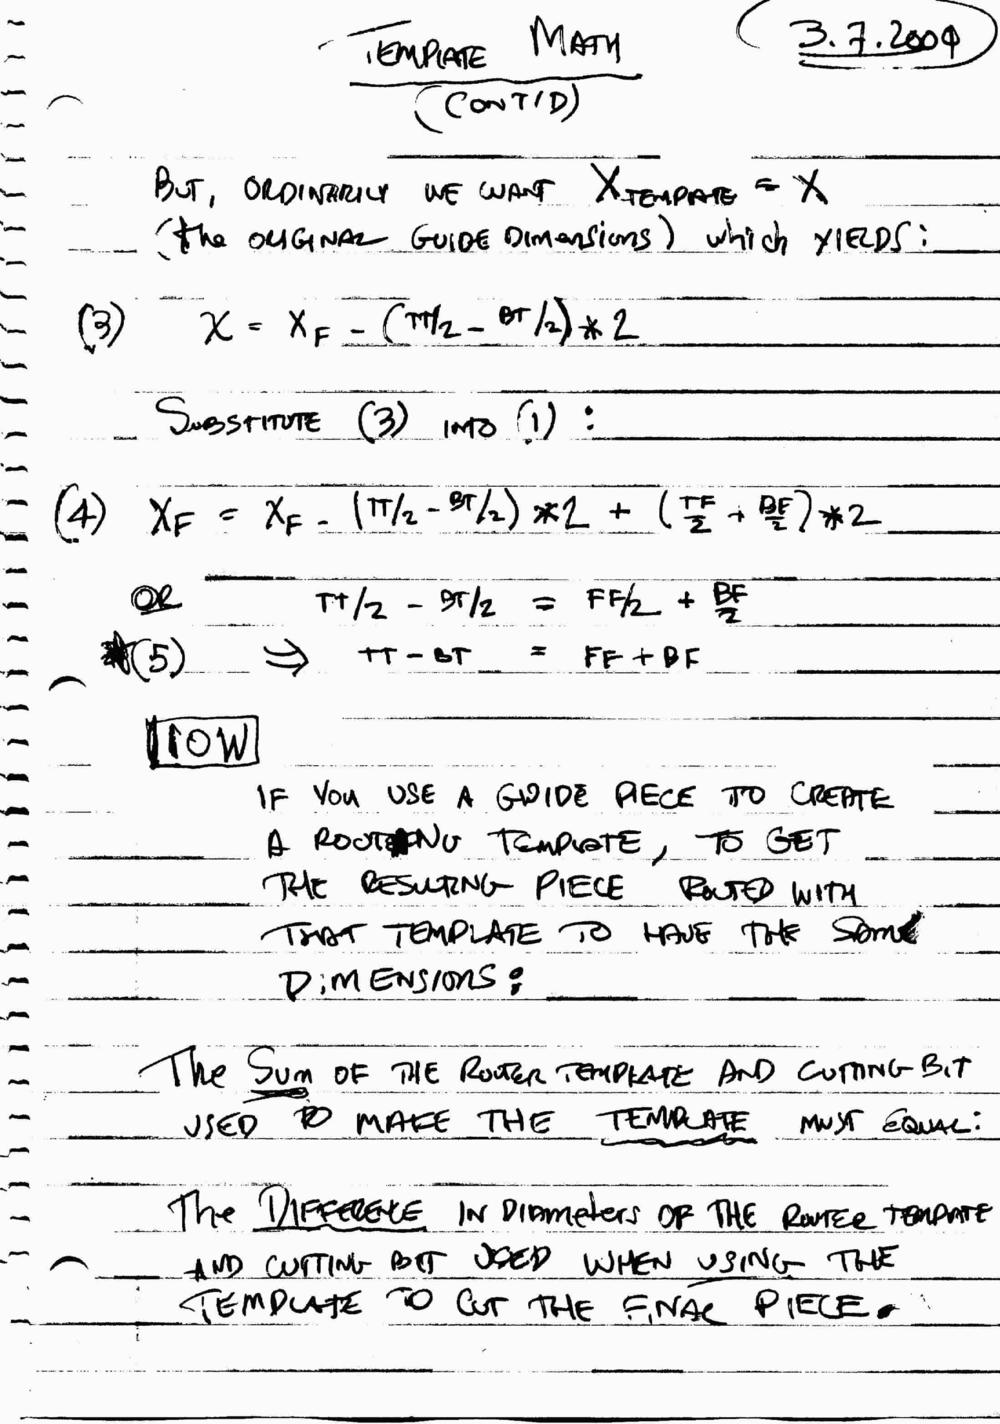 TEMPLATE MATH
3.7.2009
(CONT'D)
BUT, ORDINARILY WE WANT X TEMPLATE = X
(the ORIGINAL GUIDE DIMENSIONS) which YIELDS:
(3) X = X_F - (TT/2 - BT/2) * 2
SUBSTITUTE (3) INTO (1) :
(4) X_F = X_F - (TT/2 - BT/2) * 2 + (TF/2 + BF/2) * 2
OR TT/2 - BT/2 = FF/2 + BF/2
*(5) ⇒ TT - BT = FF + BF
IOW
IF YOU USE A GUIDE PIECE TO CREATE
A ROUTING TEMPLATE, TO GET
THE RESULTING PIECE ROUTED WITH
THAT TEMPLATE TO HAVE THE SAME
DIMENSIONS:
The Sum OF THE ROUTER TEMPLATE AND CUTTING BIT
USED TO MAKE THE TEMPLATE MUST EQUAL:
The DIFFERENCE IN DIAMETERS OF THE ROUTER TEMPLATE
AND CUTTING BIT USED WHEN USING THE
TEMPLATE TO CUT THE FINAL PIECE.